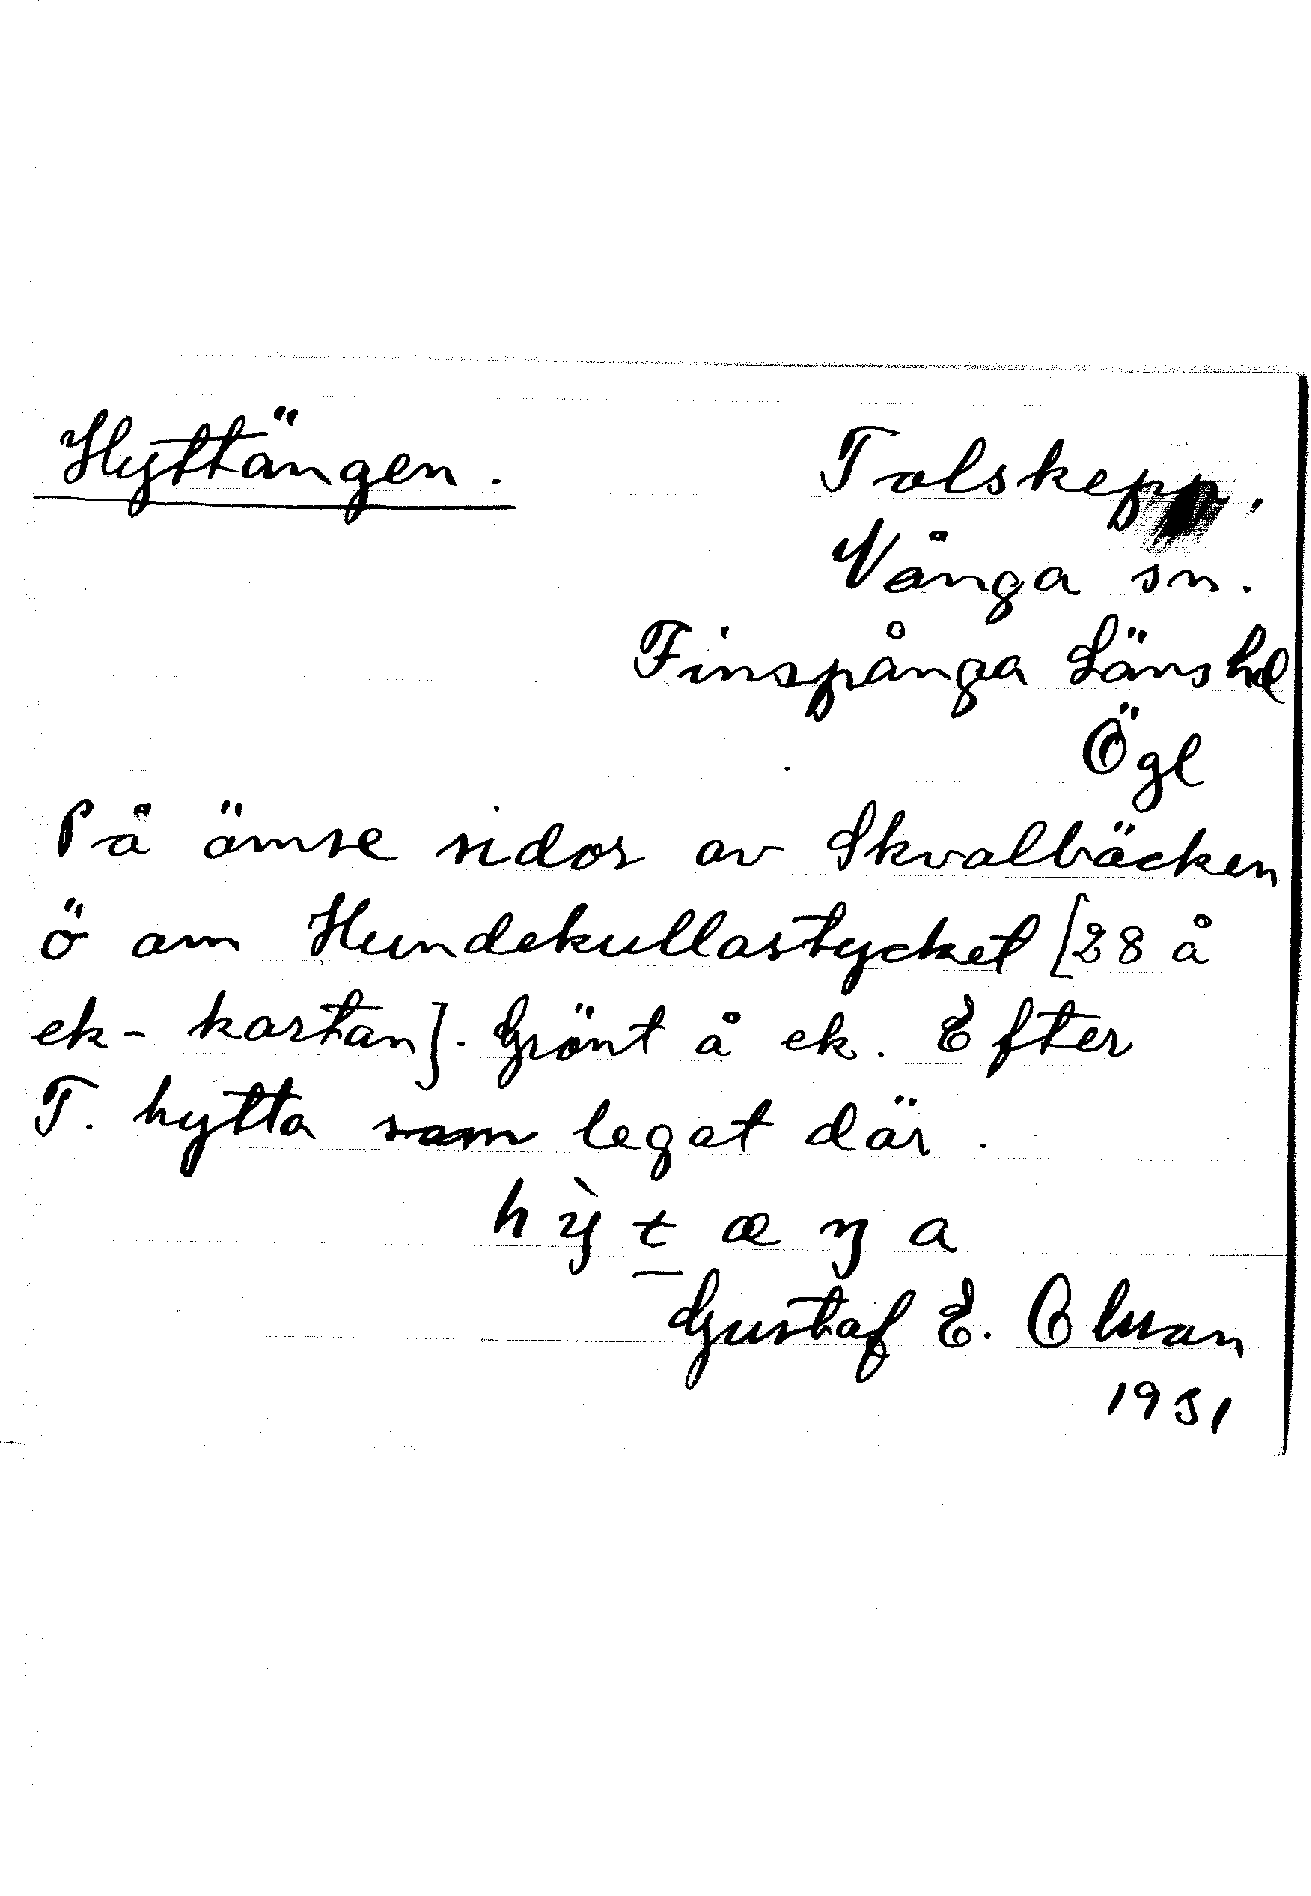 Hyttängen.
Tolskepp.
Vånga sn.
Finspånga Läns hd
Ögl
På ömse sidor av Skvalbäcken
ö om Hundekullastycket [28 å
ek-kartan]. Grönt å ek. Efter
T. hytta som legat där.
hỳt̲æŋa
Gustaf E. Olsson
1931